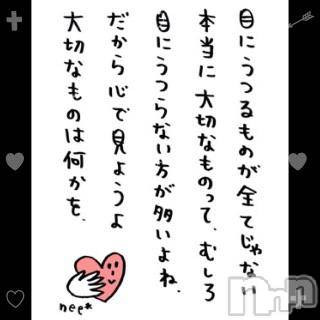 目にうつるものが全てじゃない
本当に大切なものって、むしろ
目にうつらない方が多いよね、
だから心で見ようよ
大切なものは何かを、
nee*